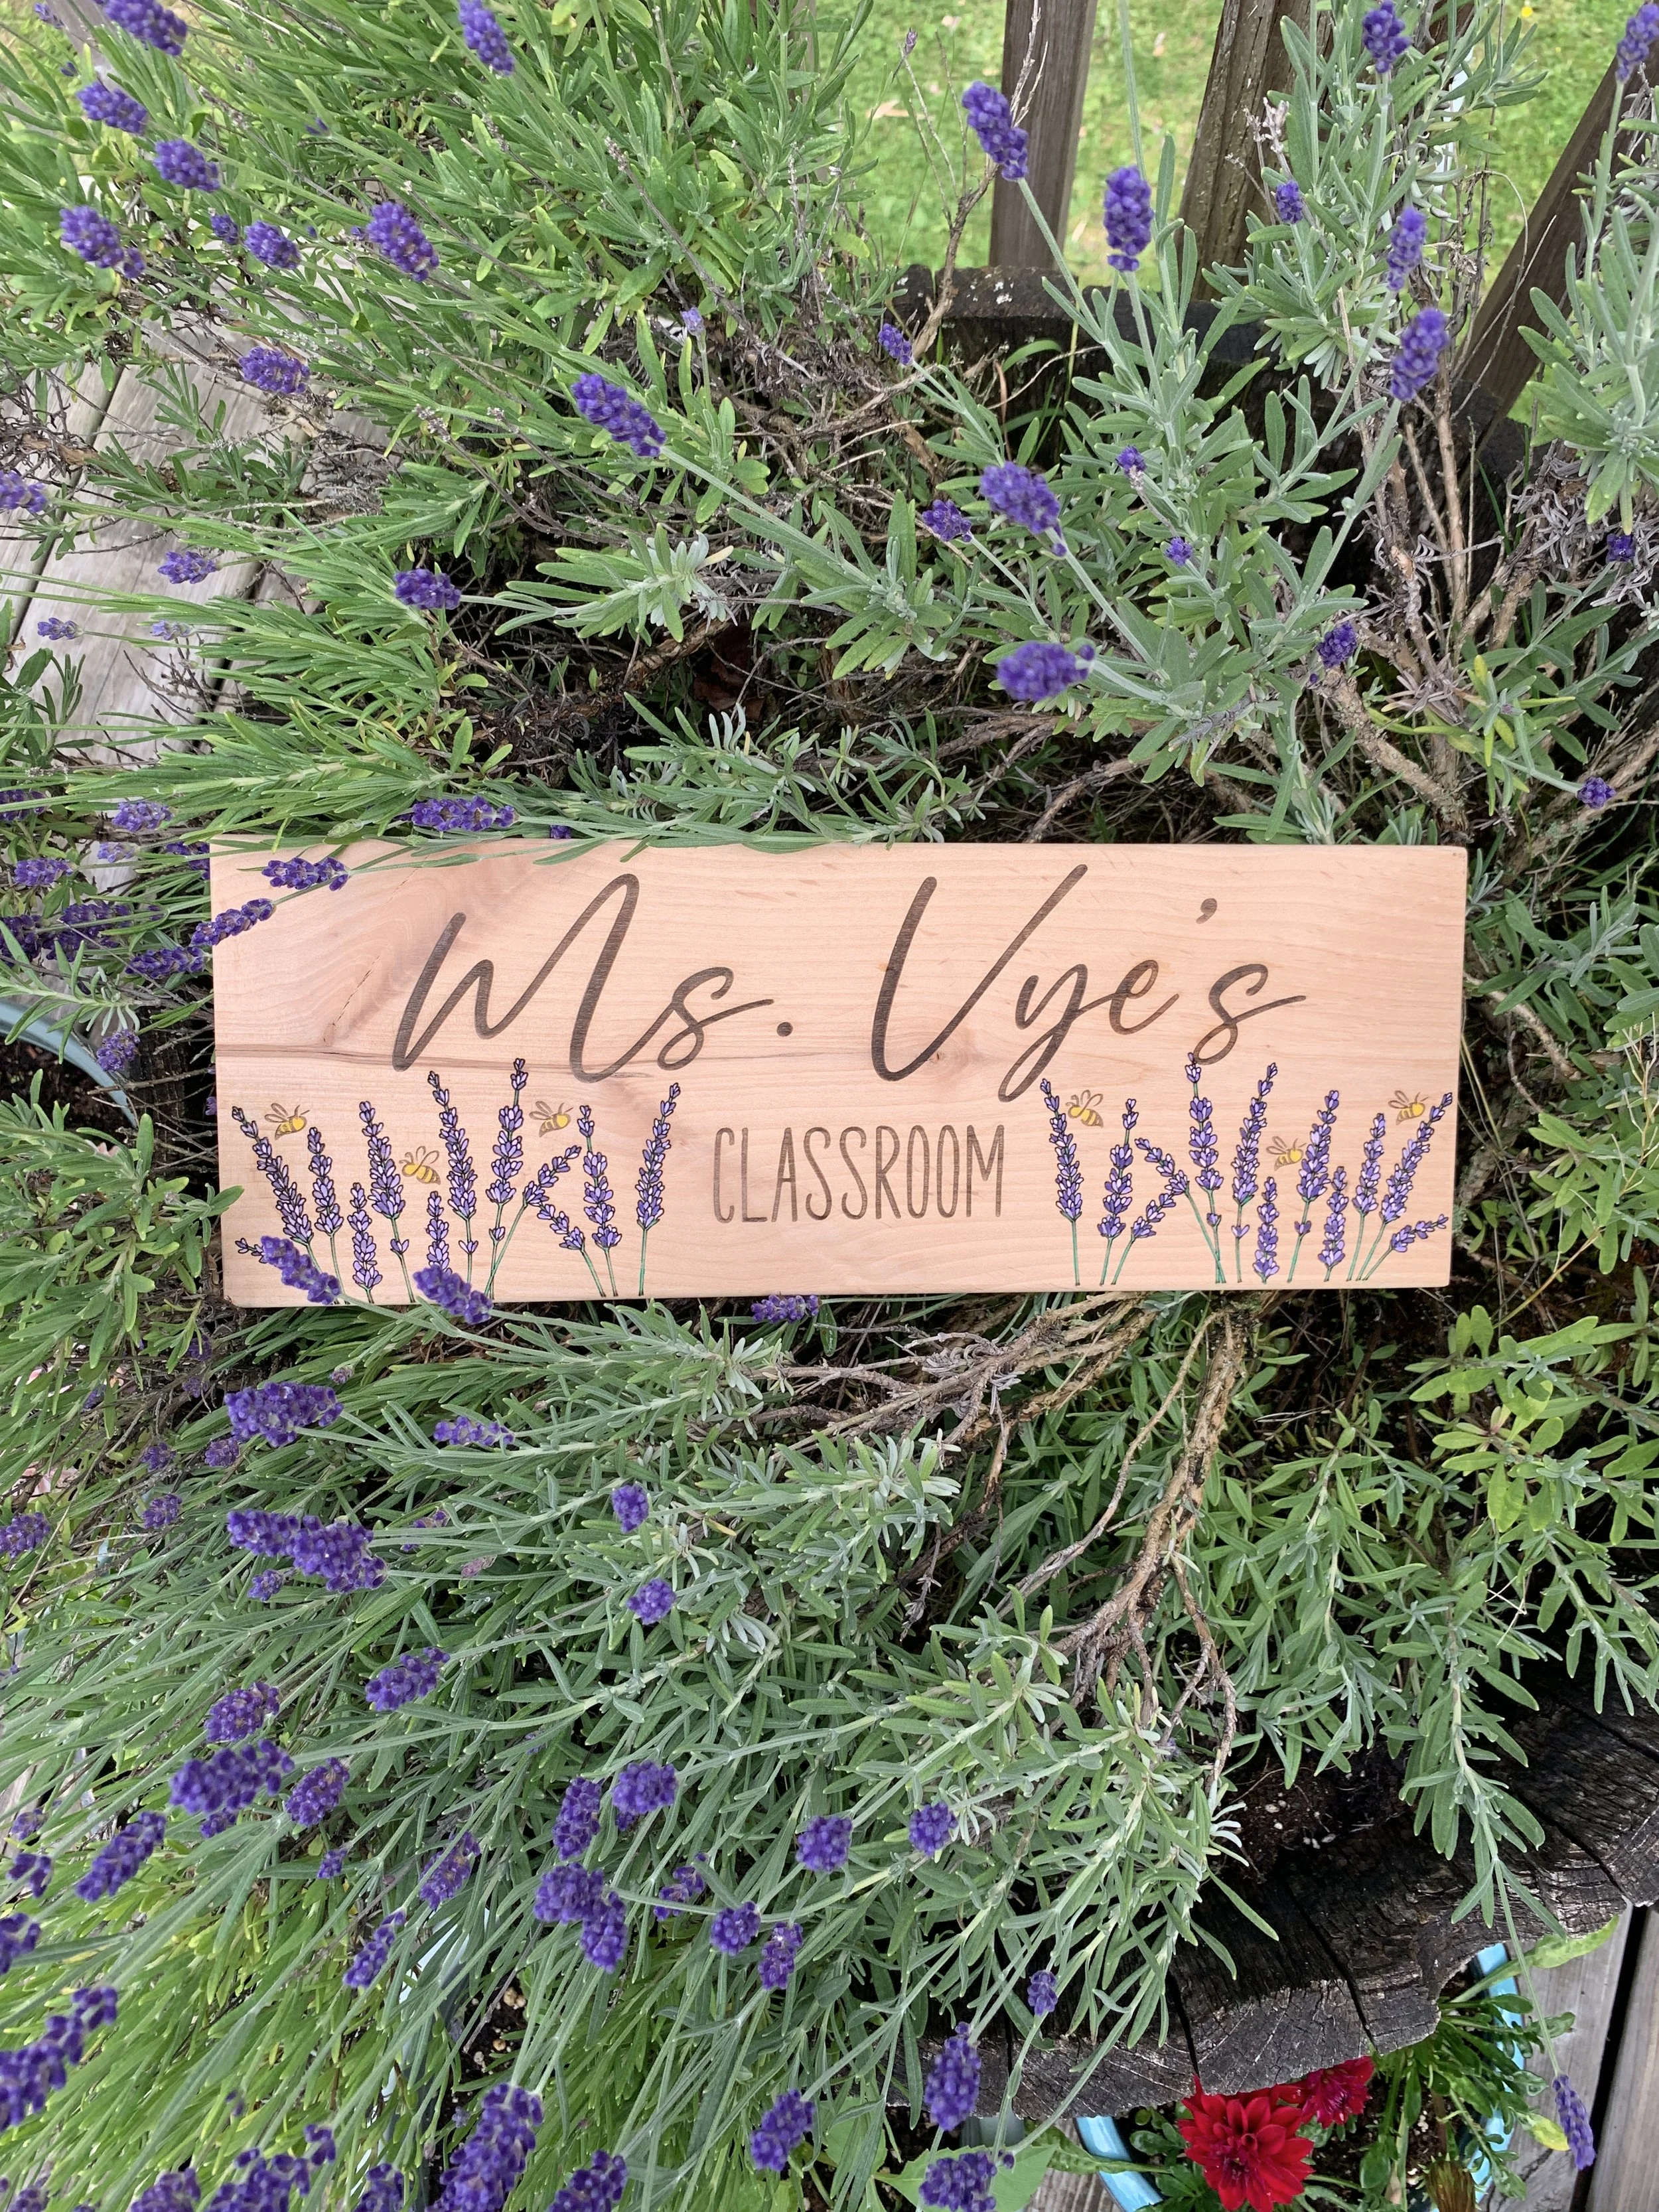 Ms. Vye's
CLASSROOM